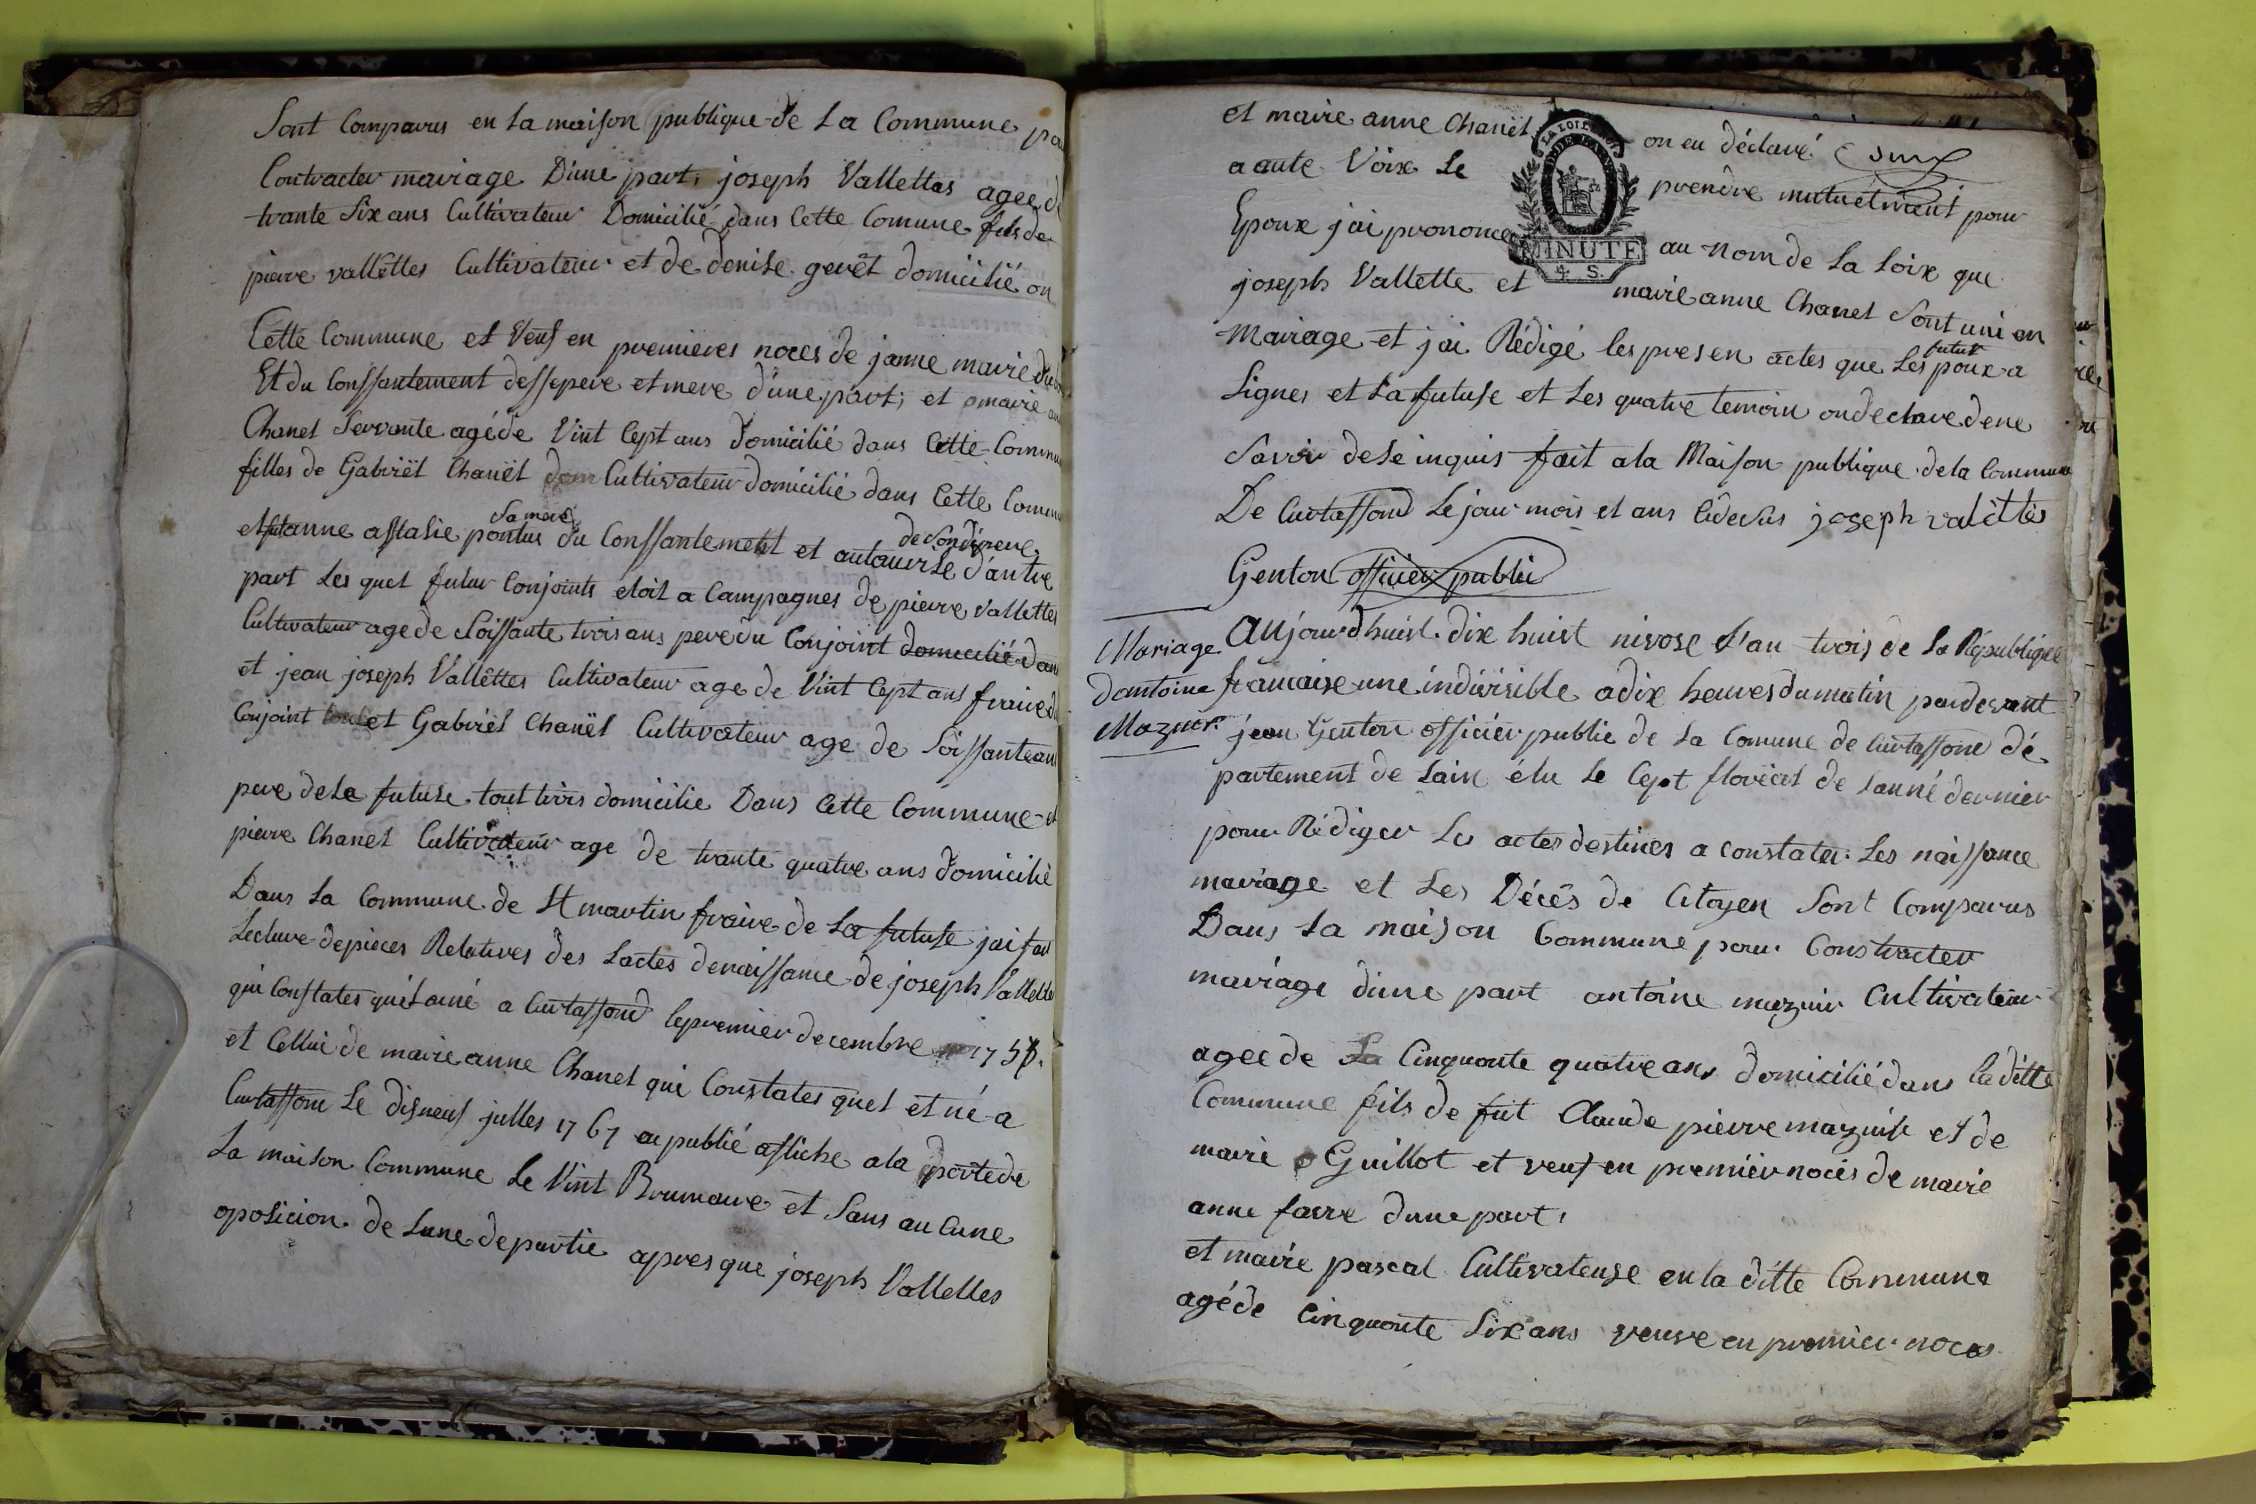 Sont Comparus en la maison publique de La Commune po
Contracter mariage Dune part, joseph Vallettes agee d
trante Six ans Cultivateur Domicilié dans Cette Comune fils de
pierre vallettes Cultivateur et de denise gerêt domicilié on
Cette Commune et Veuf en premieres noces de janne marie
Et du Conssantement dessepere et mere dune part; et marie an
Chanel Servante agé de Vint Cept ans domicilié dans Cette Commu
filles de Gabriël Chanël Cultivateur domicilié dans Cette Commu
sa mere
de son dipere
anne astasie pontus du Conssantement et autaurise d'antre
part Les quel futur Conjoints etoit a Campagnes de pierre Vallettes
Cultivateur age de Soissante trois ans pere du Conjoint domicilié dan
et jean joseph Vallêttes Cultivateur age de Vint Cept ans fraire d
Conjoint et Gabriel Chanël Cultivateur age de Soissante an
pere de la future tout trois domicilie Dans Cette Commune et
pierre Chanel Cultivateur age de trante quatre ans domicilié
Dans La Commune de St martin fraire de La future jai fai
Lecture de pieces Relatives des Lactes de naissance de joseph Vallette
qui Constates quil ainé a Curtassond le premier decembre 175
et Cellui de marie anne Chanel qui Constates quel et né a
Curtassond Le disneuf julles 1767 a publié affiche ala porte de
La maison Commune Le Vint Brumaire et Sans aucune
oposicion de Lune de partie apres que joseph Vallettes
et marie anne Chanël on eu déclaré
LA LOI LE ROI
a aute Voix Le prendre mutuelment pour
Epoux jai prononce au nom de La Loix que
MINUTE
4. S.
joseph Vallette et marie anne Chanel Sont uni en
futur
Mariage et jai Rédigé les presen actes que Les poux a
Signer et La future et Les quatre temoin on declare de ne
Savoir de Se inquis fait a la Maison publique de la Commune
De Curtassond Le jour mois et ans Cidesus joseph valêttes
Genton officier public
Mariage
dantoine
Maznir
Aujourdhuist dix huist nivose L'an trois de La Républigue
francaise une indivisible a dix heures du matin par devant
jean Genton officier public de La Comune de Curtassond dé
partement de Lain élu Le Cept floréal de Lanné dernier
pour Rédiger Les actes destines a constater Les naissance
mariage et Les Décês de Citoyen Sont Comparus
Dans La maison Commune pour Constracter
mariage dune part antoine maznir Cultivateur
agee de Cinquante quatre ans domicilié dans ladítte
Commune fils de fut Claude pierre maznir et de
marie Guillot et veuf en premier noces de marie
anne favre dune part,
et marie pascal Cultivateuse en la ditte Commune
agé de Cinquante Six ans veuve en premier noces